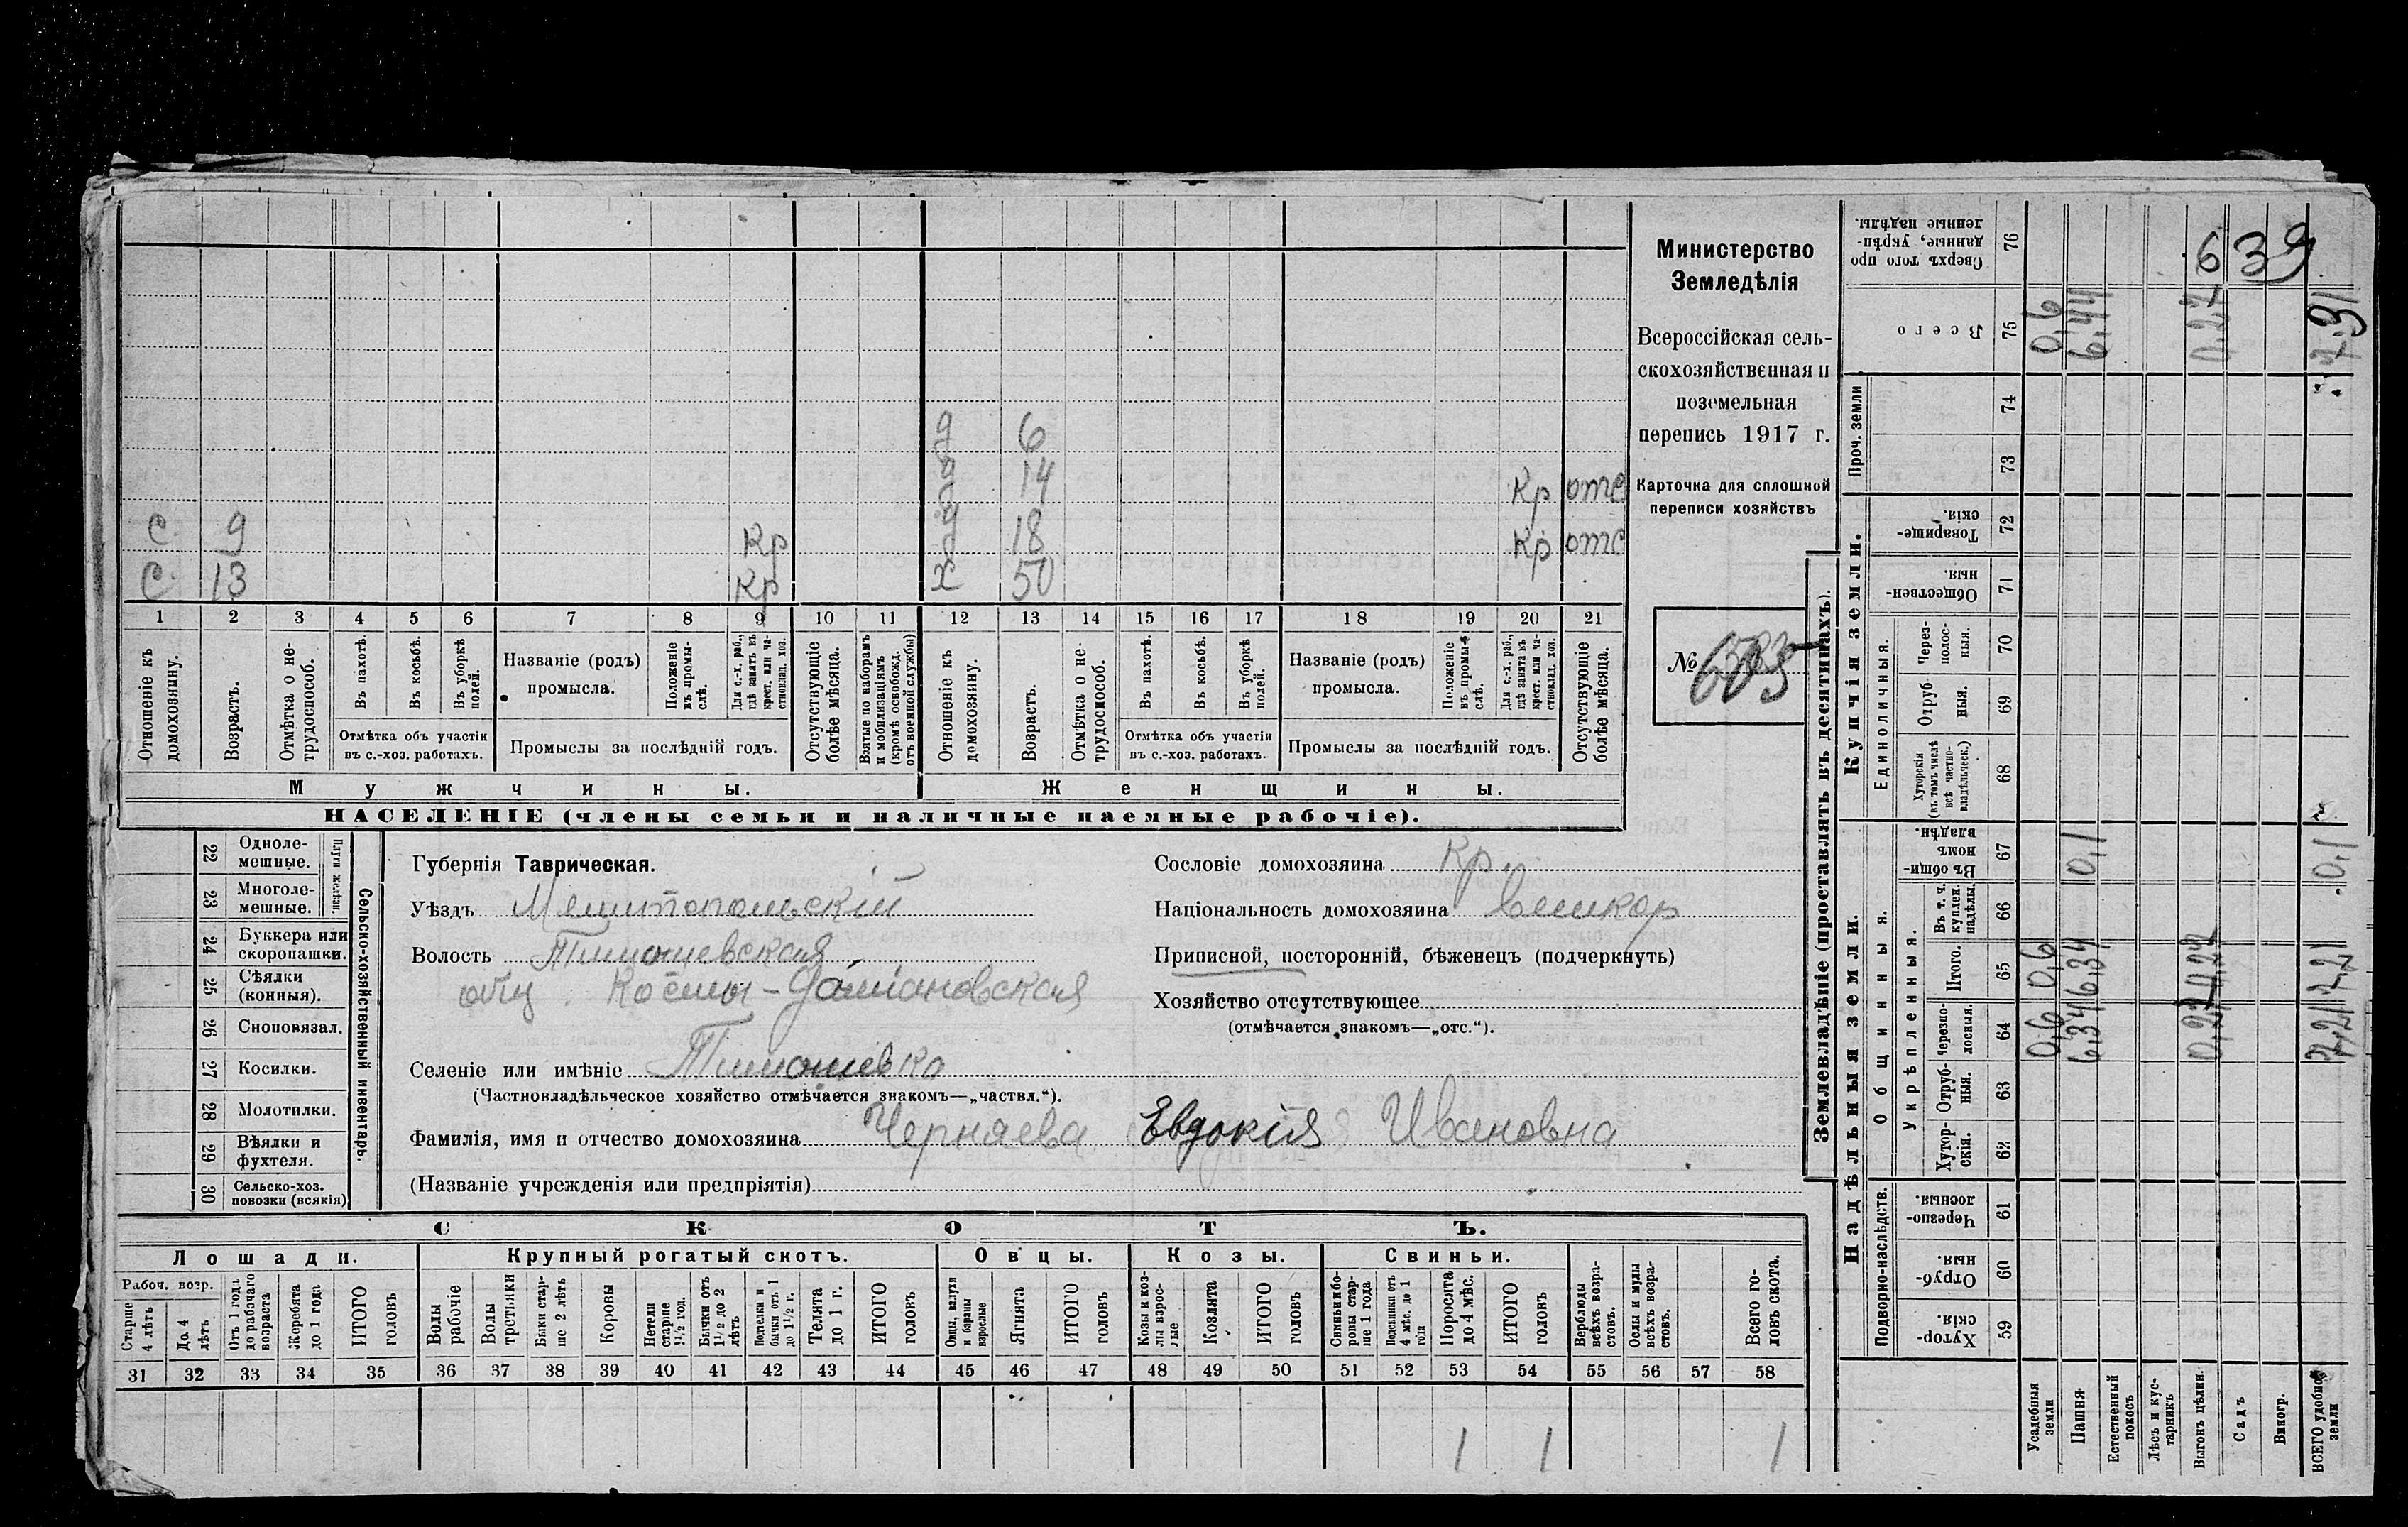 Министерство
Земледѣлія
Всероссійская сель-
скохозяйственная и
поземельная
перепись 1917 г.
Карточка для сплошной
переписи хозяйствъ
№
639
д 6
д 14 Кр отс
С 9 Кр д 18 Кр отс
С 13 Кр х 50
1 2 3 4 5 6 7 8 9 10 11 12 13 14 15 16 17 18 19 20 21
Отношеніе къ домохозяину.
Возрастъ.
Отмѣтка о не-трудоспособ.
Въ пахотѣ.
Въ косьбѣ.
Въ уборкѣ полей.
Отмѣтка объ участіи
въ с.-хоз. работахъ.
Названіе (родъ)
промысла.
Положеніе въ промы-слѣ.
Для с.-х. раб., гдѣ занятъ въ крест. или ча-стновлад. хоз.
Промыслы за послѣдній годъ.
Отсутствующіе болѣе мѣсяца.
Взятые по наборамъ и мобилизаціямъ (кромѣ освобожд. отъ военной службы)
Отношеніе къ домохозяину.
Возрастъ.
Отмѣтка о не-трудоспособ.
Въ пахотѣ.
Въ косьбѣ.
Въ уборкѣ полей.
Отмѣтка объ участіи
въ с.-хоз. работахъ.
Названіе (родъ)
промысла.
Положеніе въ промы-слѣ.
Для с.-х. раб., гдѣ занята въ крест. или ча-стновлад. хоз.
Промыслы за послѣдній годъ.
Отсутствующіе болѣе мѣсяца.
Мужчины. Женщины.
НАСЕЛЕНІЕ (члены семьи и наличные наемные рабочіе).
Сельско-хозяйственный инвентарь.
Плуги желѣзн.
22 Одноле-мешные.
23 Многоле-мешные.
24 Буккера или скоропашки.
25 Сѣялки (конныя).
26 Сноповязал.
27 Косилки.
28 Молотилки.
29 Вѣялки и фухтеля.
30 Сельско-хоз. повозки (всякія)
Губернія Таврическая.
Уѣздъ Мелитопольскій
Волость Тимошевская
общ. Космо-Даміановская
Селеніе или имѣніе Тимошевка
(Частновладѣльческое хозяйство отмѣчается знакомъ—„частвл.“).
Фамилія, имя и отчество домохозяина Черняева Евдокія Ивановна
(Названіе учрежденія или предпріятія)
Сословіе домохозяина Кр.
Національность домохозяина великор
Приписной, посторонній, бѣженецъ (подчеркнуть)
Хозяйство отсутствующее
(отмѣчается знакомъ—„отс.“).
СКОТЪ.
Лошади. Крупный рогатый скотъ. Овцы. Козы. Свиньи.
Рабоч. возр.
Старше 4 лѣтъ
До 4 лѣтъ
Отъ 1 года до рабочаго возраста
Жеребята до 1 года
ИТОГО головъ
Волы рабочіе
Волы третьяки
Быки стар-ше 2 лѣтъ
Коровы
Нетели старше 1½ год.
Бычки отъ 1½ до 2 лѣтъ
Подтелки и бычки отъ 1 до 1½ г.
Телята до 1 г.
ИТОГО головъ
Овцы, валухи и бараны взрослые
Ягнята
ИТОГО головъ
Козы и коз-лы взрос-лые
Козлята
ИТОГО головъ
Свиньи и бо-ровы стар-ше 1 года
Подсвинки отъ 4 мѣс. до 1 года
Поросята до 4 мѣс.
ИТОГО головъ
Верблюды всѣхъ возра-стовъ.
Ослы и мулы всѣхъ возра-стовъ.
Всего го-ловъ скота.
31 32 33 34 35 36 37 38 39 40 41 42 43 44 45 46 47 48 49 50 51 52 53 54 55 56 57 58
1 1 1
Землевладѣніе (проставлять въ десятинахъ).
Надѣльныя земли.
Купчія земли.
Проч. земли
Подворно-наслѣдств.
Общинныя.
Укрѣпленныя.
Единоличныя.
59 Хутор-скія.
60 Отруб-ныя.
61 Черезпо-лосныя.
62 Хутор-скія.
63 Отруб-ныя.
64 Черезпо-лосныя. 0,6 6,34 0,27 7,21
65 Итого. 0,6 6,34 0,27 7,21
66 Въ т. ч. куплен. надѣлы.
67 Въ общи-номъ владѣн. 0,1 0,1
68 Хуторскія (въ томъ числѣ всѣ частно-владѣльческ.)
69 Отруб-ныя.
70 Через-полос-ныя.
71 Обществен-ныя.
72 Товарище-скія.
73
74
75 Всего 0,6 6,44 0,27 7,31
76 Сверхъ того про-данные, укрѣп-ленные надѣлы.
Усадебныя земли
Пашня
Естественный покосъ
Лѣсъ и кус-тарникъ
Выгонъ цѣлин.
Садъ
Виногр.
ВСЕГО удобной земли